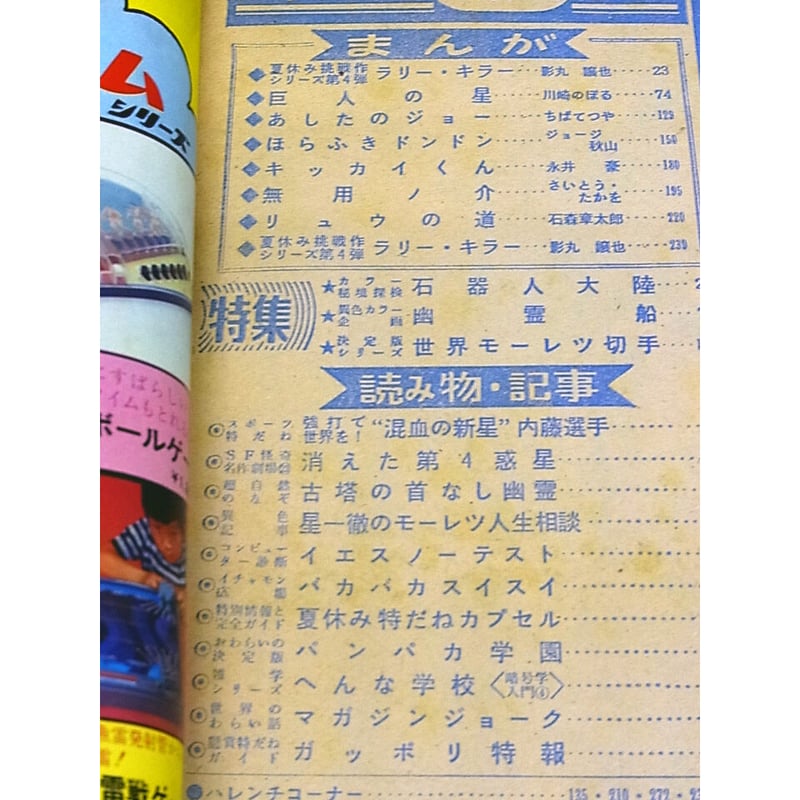 まんが
夏休み挑戦作シリーズ第4弾 ラリー・キラー 影丸 譲也 23
巨人の星 川崎のぼる 74
あしたのジョー ちばてつや 129
ほらふきドンドン ジョージ秋山 150
キッカイくん 永井 豪 180
無用ノ介 さいとう・たかを 195
リュウの道 石森章太郎 220
夏休み挑戦作シリーズ第4弾 ラリー・キラー 影丸 譲也 239
特集
★カラー秘境探検 石器人大陸
★異色カラー企画 幽霊船
★決定版シリーズ 世界モーレツ切手
読み物・記事
スポーツ特だね 強打で世界を！ “混血の新星” 内藤選手
SF怪奇名作劇場 消えた第4惑星
超自然のなぞ 古塔の首なし幽霊
異色記事 星一徹のモーレツ人生相談
コンピューター診断 イエスノーテスト
イチャモン バカバカスイスイ
特別情報と完全ガイド 夏休み特だねカプセル
おわらいの決定版 パンパカ学園
雑学シリーズ へんな学校 〈暗号学入門④〉
世界のわらい話 マガジンジョーク
懸賞特だねガイド ガッポリ特報
●ハレンチコーナー 135・210・272
ム
シリーズ
すばらしい
イムもとれ
ボールゲー
雷戦ゲ